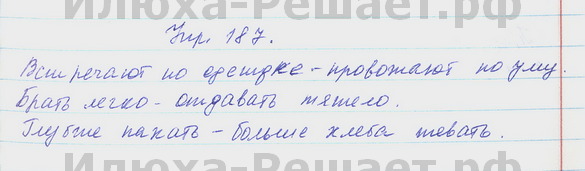 Илюха-Решает.рф
Упр. 187.
Встречают по одежке - провожают по уму.
Брать легко - отдавать тяжело.
Глубже пахать - больше хлеба жевать.
Илюха-Решает.рф